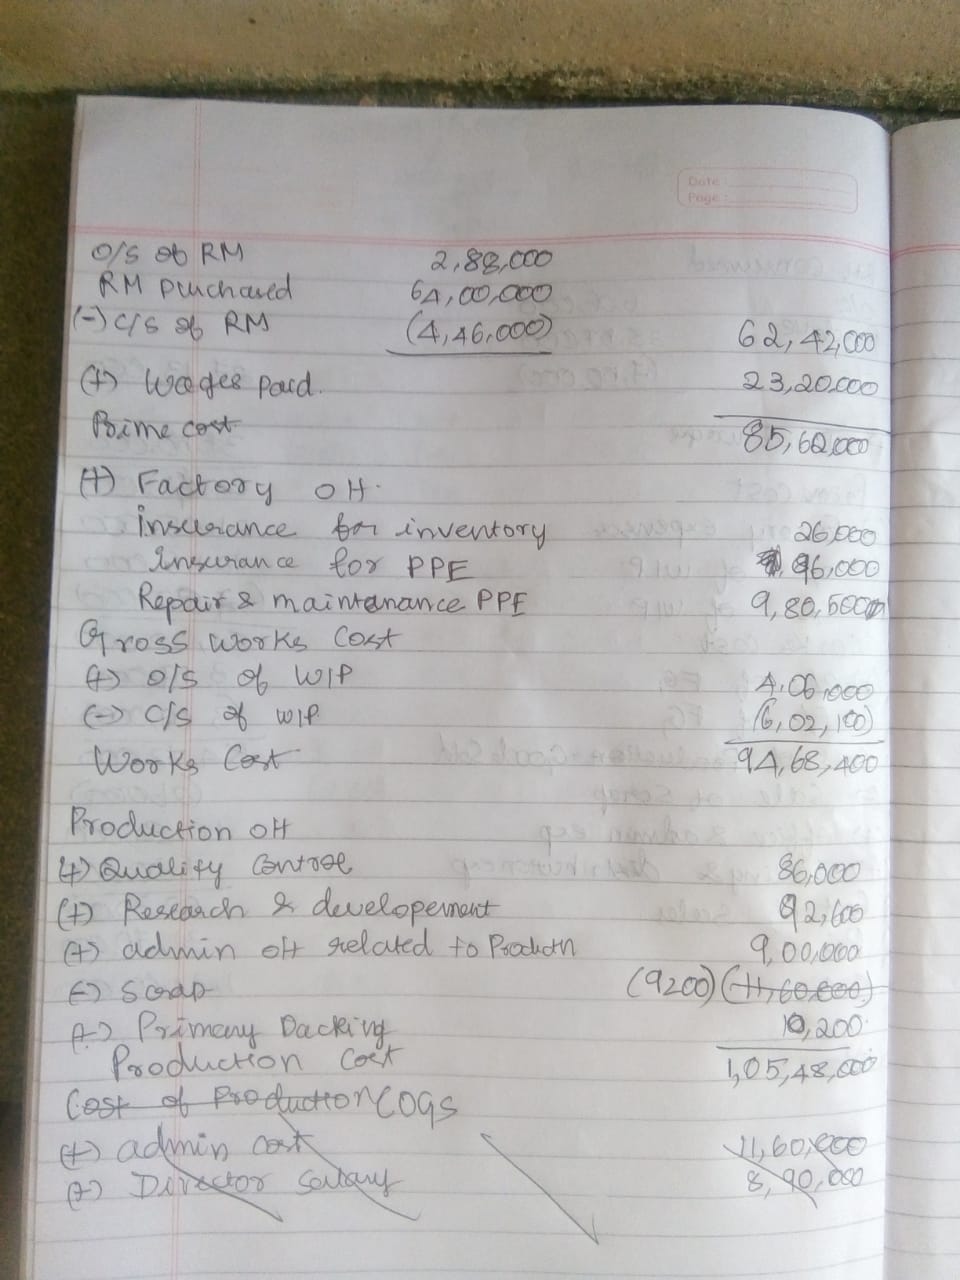 Date :
Page :
O/S of RM 2,88,000
RM purchased 64,00,000
(-) C/S of RM (4,46,000) 62,42,000
(+) Wages paid. 23,20,000
Prime cost 85,62,000
(+) Factory OH.
insurance for inventory 26,000
Insurance for PPE 96,000
Repair & maintanance PPE 9,80,500
Gross works Cost
(+) O/S of WIP 4,06,000
(-) C/S of WIP (6,02,100)
Works Cost 94,68,400
Production OH
(+) Quality Control 86,000
(+) Research & developement 92,600
(+) admin OH related to Productn 9,00,000
(-) Scrap (9200) (11,60,000)
(+) Primary Packing 10,200
Production Cost 1,05,48,000
Cost of Production COGS
(+) admin cost 11,60,000
(+) Director Salary 8,90,000